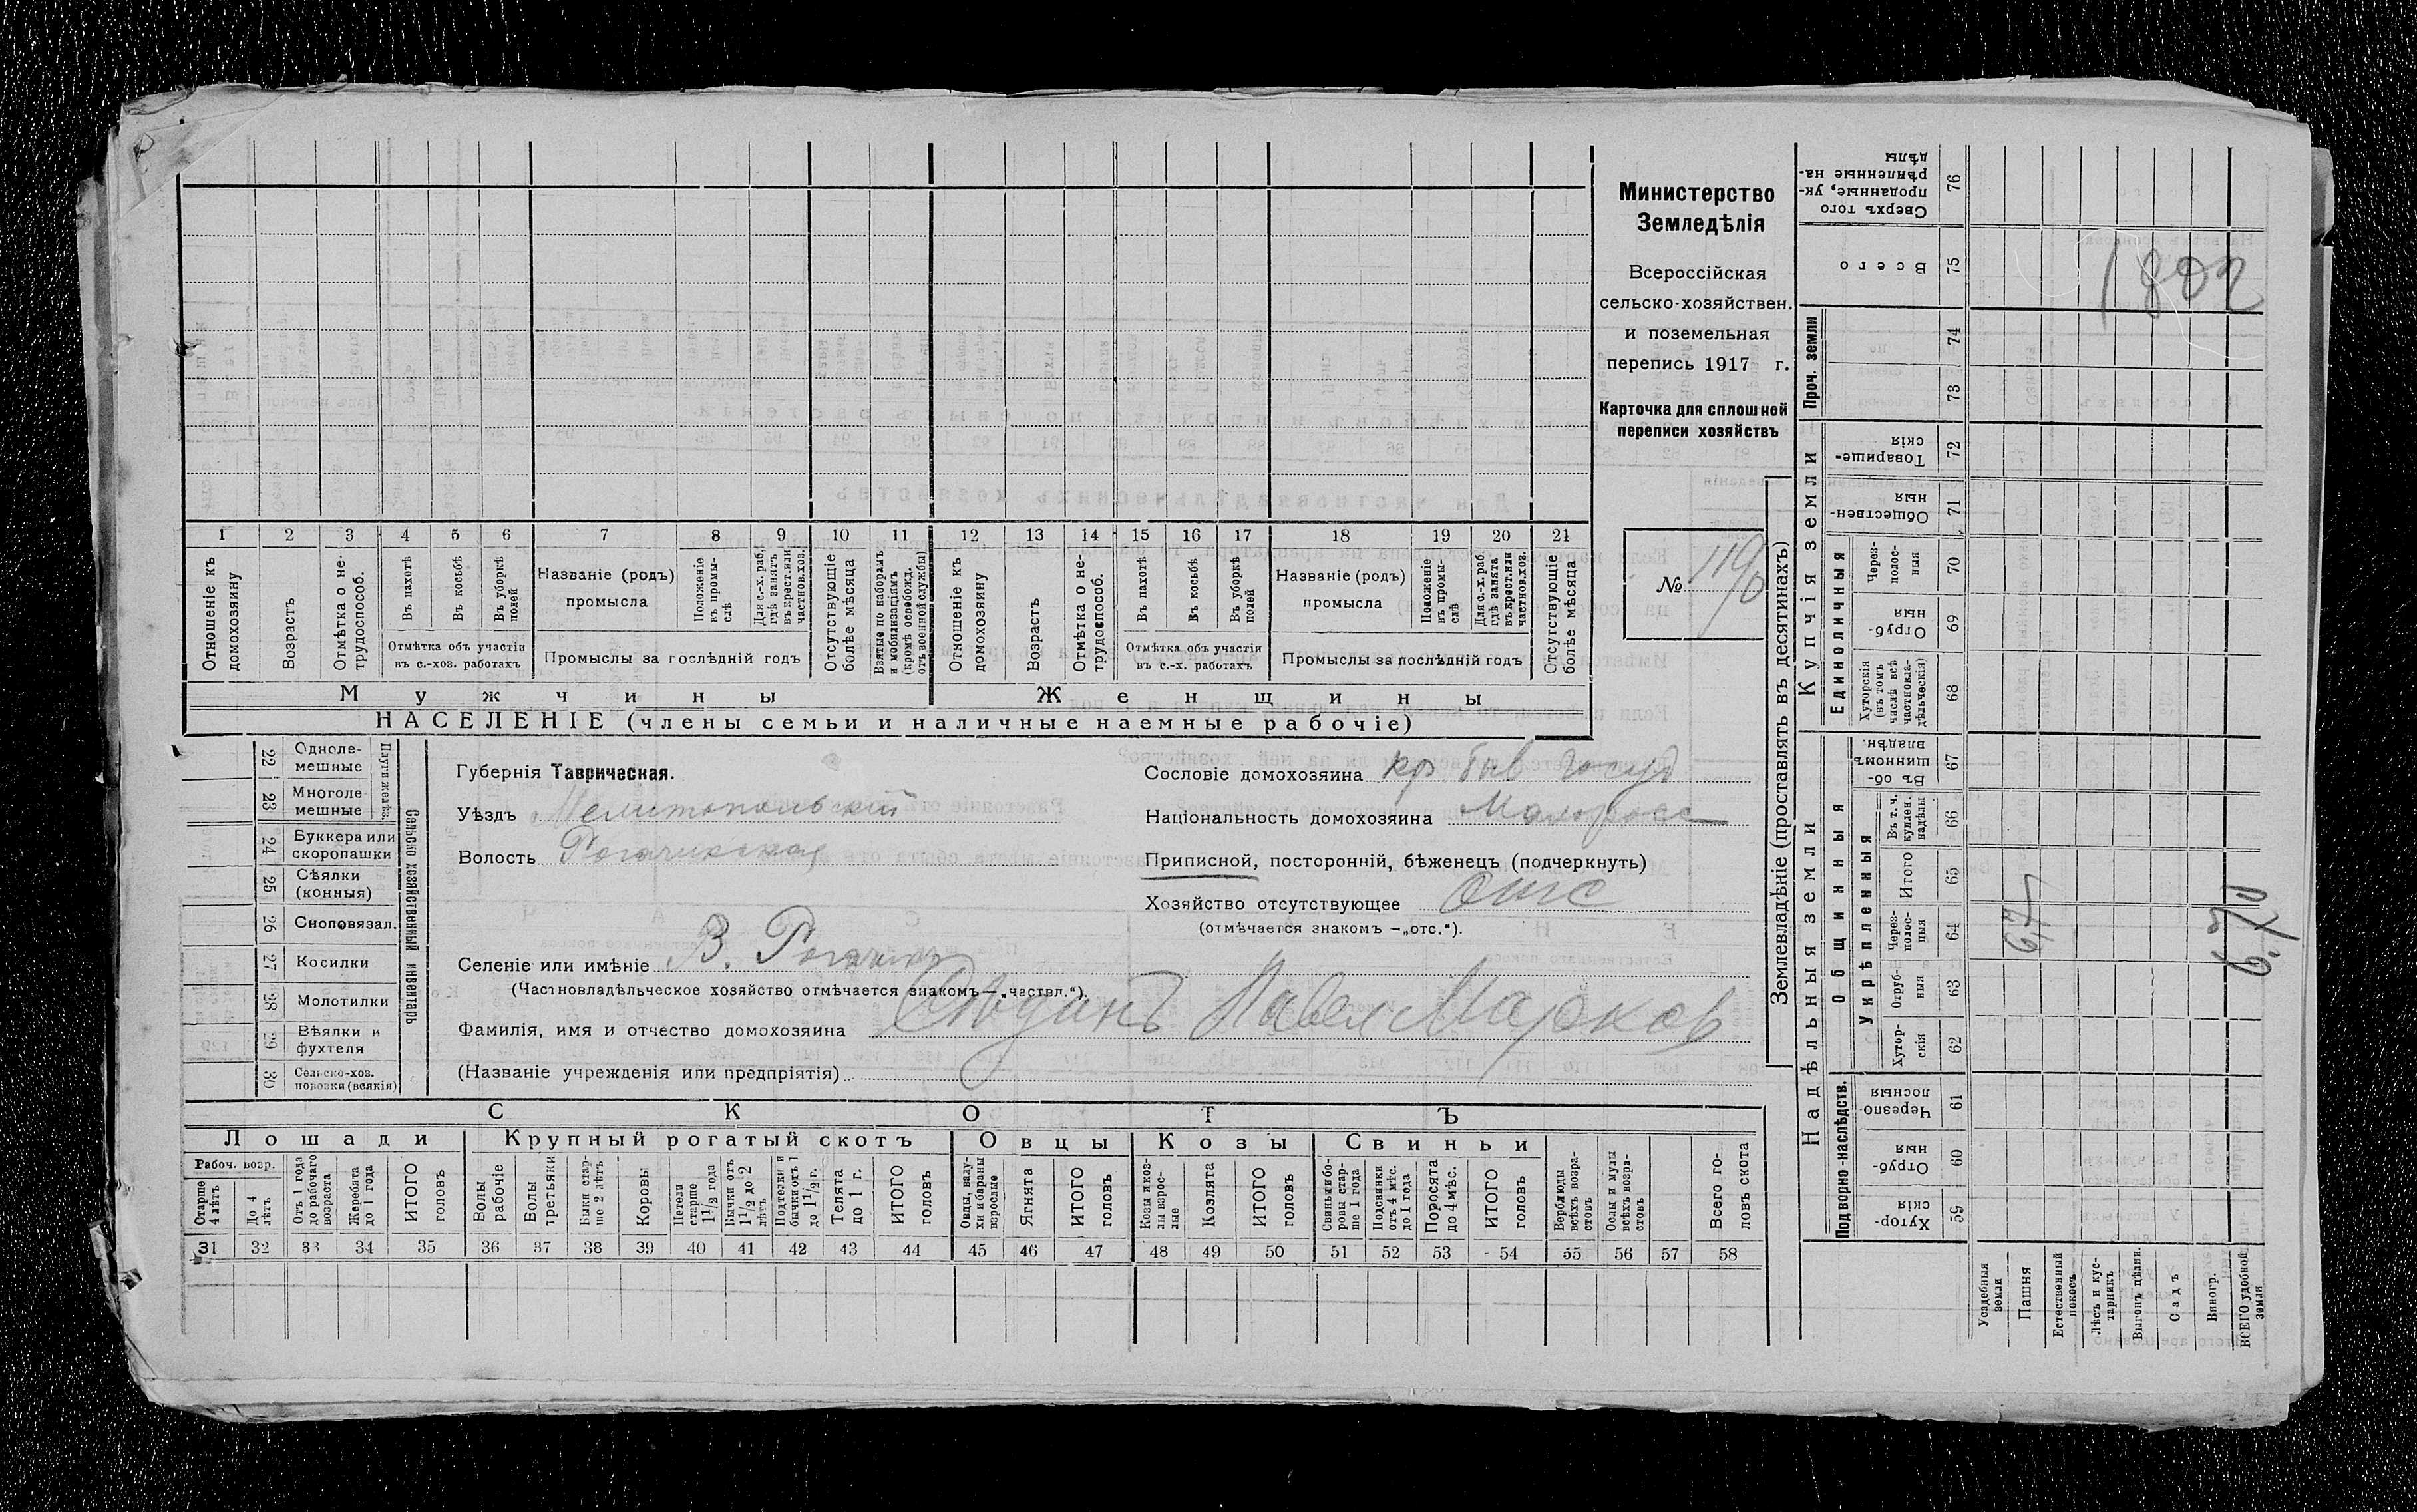 Министерство
Земледѣлія
Всероссійская
сельско-хозяйствен.
и поземельная
перепись 1917 г.
Карточка для сплошной
переписи хозяйствъ
№ 119/0
1 2 3 4 5 6 7 8 9 10 11 12 13 14 15 16 17 18 19 20 21
Отношеніе къ домохозяину
Возрастъ
Отмѣтка о не-трудоспособ.
Въ пахотѣ
Въ косьбѣ
Въ уборкѣ полей
Отмѣтка объ участіи
въ с.-хоз. работахъ
Названіе (родъ)
промысла
Положеніе въ промы-слѣ
Для с.-х. раб. гдѣ занятъ въ крест. или частнов. хоз.
Промыслы за послѣдній годъ
Отсутствующіе болѣе мѣсяца
Взятые по наборамъ и мобилизаціямъ (кромѣ освобожд. отъ военной службы)
Отношеніе къ домохозяину
Возрастъ
Отмѣтка о не-трудоспособ.
Въ пахотѣ
Въ косьбѣ
Въ уборкѣ полей
Отмѣтка объ участіи
въ с.-х. работахъ
Названіе (родъ)
промысла
Положеніе въ промы-слѣ
Для с.-х. раб. гдѣ занята въ крест. или частнов. хоз.
Промыслы за послѣдній годъ
Отсутствующіе болѣе мѣсяца
Мужчины Женщины
НАСЕЛЕНІЕ (члены семьи и наличные наемные рабочіе)
22 Одноле-мешные
23 Многоле-мешные
Плуги желѣз.
24 Буккера или скоропашки
25 Сѣялки (конныя)
26 Сноповязал.
27 Косилки
28 Молотилки
29 Вѣялки и фухтеля
30 Сельско-хоз. повозки (всякія)
Сельско хозяйственный инвентарь
Губернія Таврическая.
Уѣздъ Мелитопольскій
Волость Рогачикская
Сословіе домохозяина кр. быв. госуд
Національность домохозяина Малоросс
Приписной, посторонній, бѣженецъ (подчеркнуть)
Хозяйство отсутствующее отс
(отмѣчается знакомъ —„отс.“).
Селеніе или имѣніе В. Рогачик
(Частновладѣльческое хозяйство отмѣчается знакомъ—„частвл.“).
Фамилія, имя и отчество домохозяина Павел Марков
(Названіе учрежденія или предпріятія)
СКОТЪ
Лошади Крупный рогатый скотъ Овцы Козы Свиньи
Рабоч. возр.
Старше 4 лѣтъ
До 4 лѣтъ
Отъ 1 года до рабочаго возраста
Жеребята до 1 года
ИТОГО головъ
Волы рабочіе
Волы третьяки
Быки стар-ше 2 лѣтъ
Коровы
Нетели старше 1 1/2 года
Бычки отъ 1 1/2 до 2 лѣтъ
Подтелки и бычки отъ 1 до 1 1/2 г.
Телята до 1 г.
ИТОГО головъ
Овцы, валу-хи и бараны взрослые
Ягнята
ИТОГО головъ
Козы и коз-лы взрос-лые
Козлята
ИТОГО головъ
Свиньи и бо-ровы стар-ше 1 года
Подсвинки отъ 4 мѣс. до 1 года
Поросята до 4 мѣс.
ИТОГО головъ
Верблюды всѣхъ возра-стовъ
Ослы и мулы всѣхъ возра-стовъ
Всего го-ловъ скота
31 32 33 34 35 36 37 38 39 40 41 42 43 44 45 46 47 48 49 50 51 52 53 54 55 56 57 58
Землевладѣніе (проставлять въ десятинахъ)
Надѣльныя земли
Купчія земли
Проч. земли
Подворно-наслѣдств.
Общинныя
Укрѣпленныя
Единоличныя
Хутор-скія 59
Отруб-ныя 60
Черезпо-лосныя 61
Хутор-скія 62
Отруб-ныя 63
Через-полос-ныя 64
Итого 65
Въ т. ч. куплен. надѣлы 66
Въ об-щинномъ владѣн. 67
Хуторскія (въ томъ числѣ всѣ частновла-дѣльческія) 68
Отруб-ныя 69
Через-полос-ныя 70
Обществен-ныя 71
Товарище-скія 72
73
74
Всего 75
Сверхъ того проданные, ук-рѣпленные на-дѣлы 76
Усадебныя земли
Пашня
Естественный покосъ
Лѣсъ и кус-тарникъ
Выгонъ цѣлин.
Садъ
Виногр.
ВСЕГО удобной земли
6,7
6.70
1802